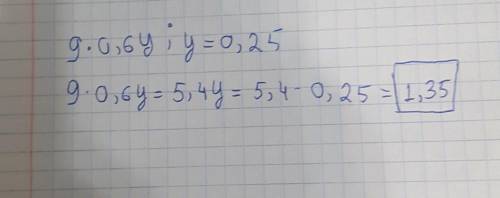 9·0,6y ; y=0,25
9·0,6y=5,4y=5,4-0,25=1,35